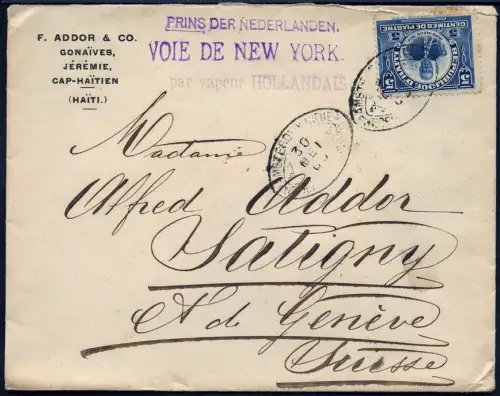 F. ADDOR & CO.
GONAÏVES,
JÉRÉMIE,
CAP-HAÏTIEN
(HAÏTI.)
PRINS DER NEDERLANDEN.
VOIE DE NEW YORK.
par vapeur HOLLANDAIS
CENTIMES DE PIASTRE
5
5
REPUBLIQUE D'HAITI
30
MEI
Madame
Alfred Addor
Satigny
Ct de Genève
Suisse